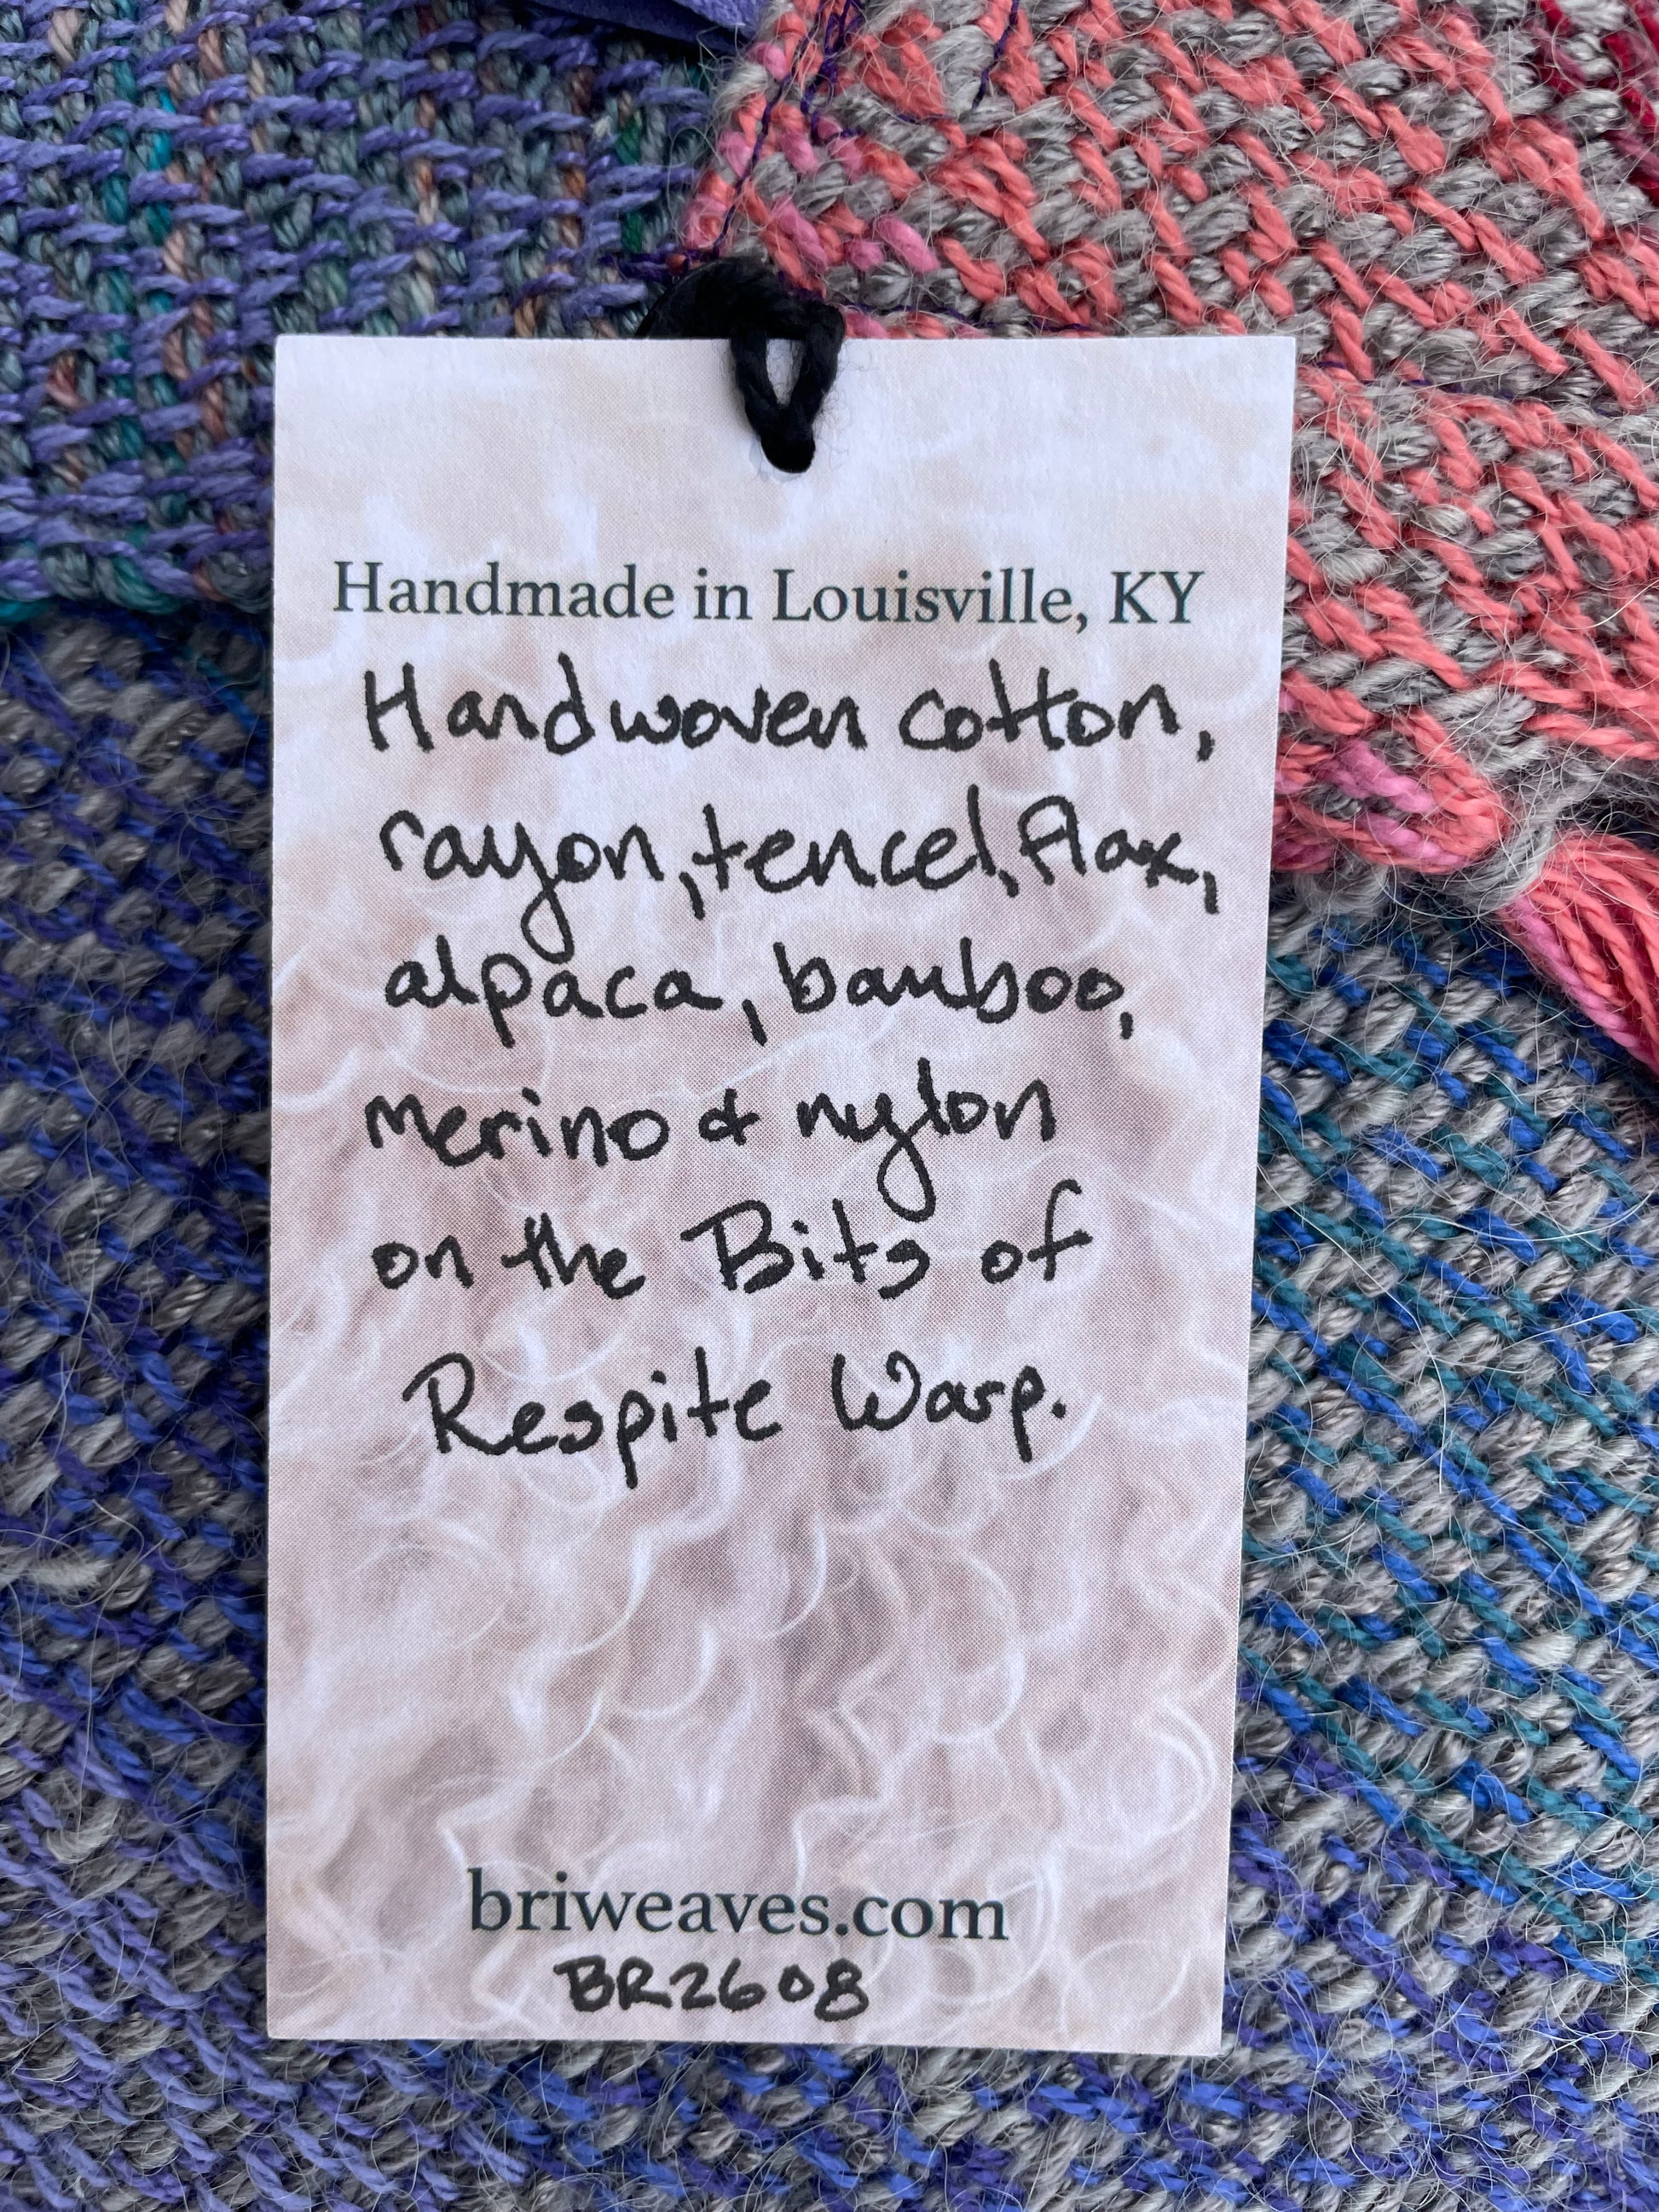 Handmade in Louisville, KY
Handwoven cotton,
rayon, tencel, flax,
alpaca, bamboo,
merino & nylon
on the Bits of
Respite Warp.
briweaves.com
BR2608